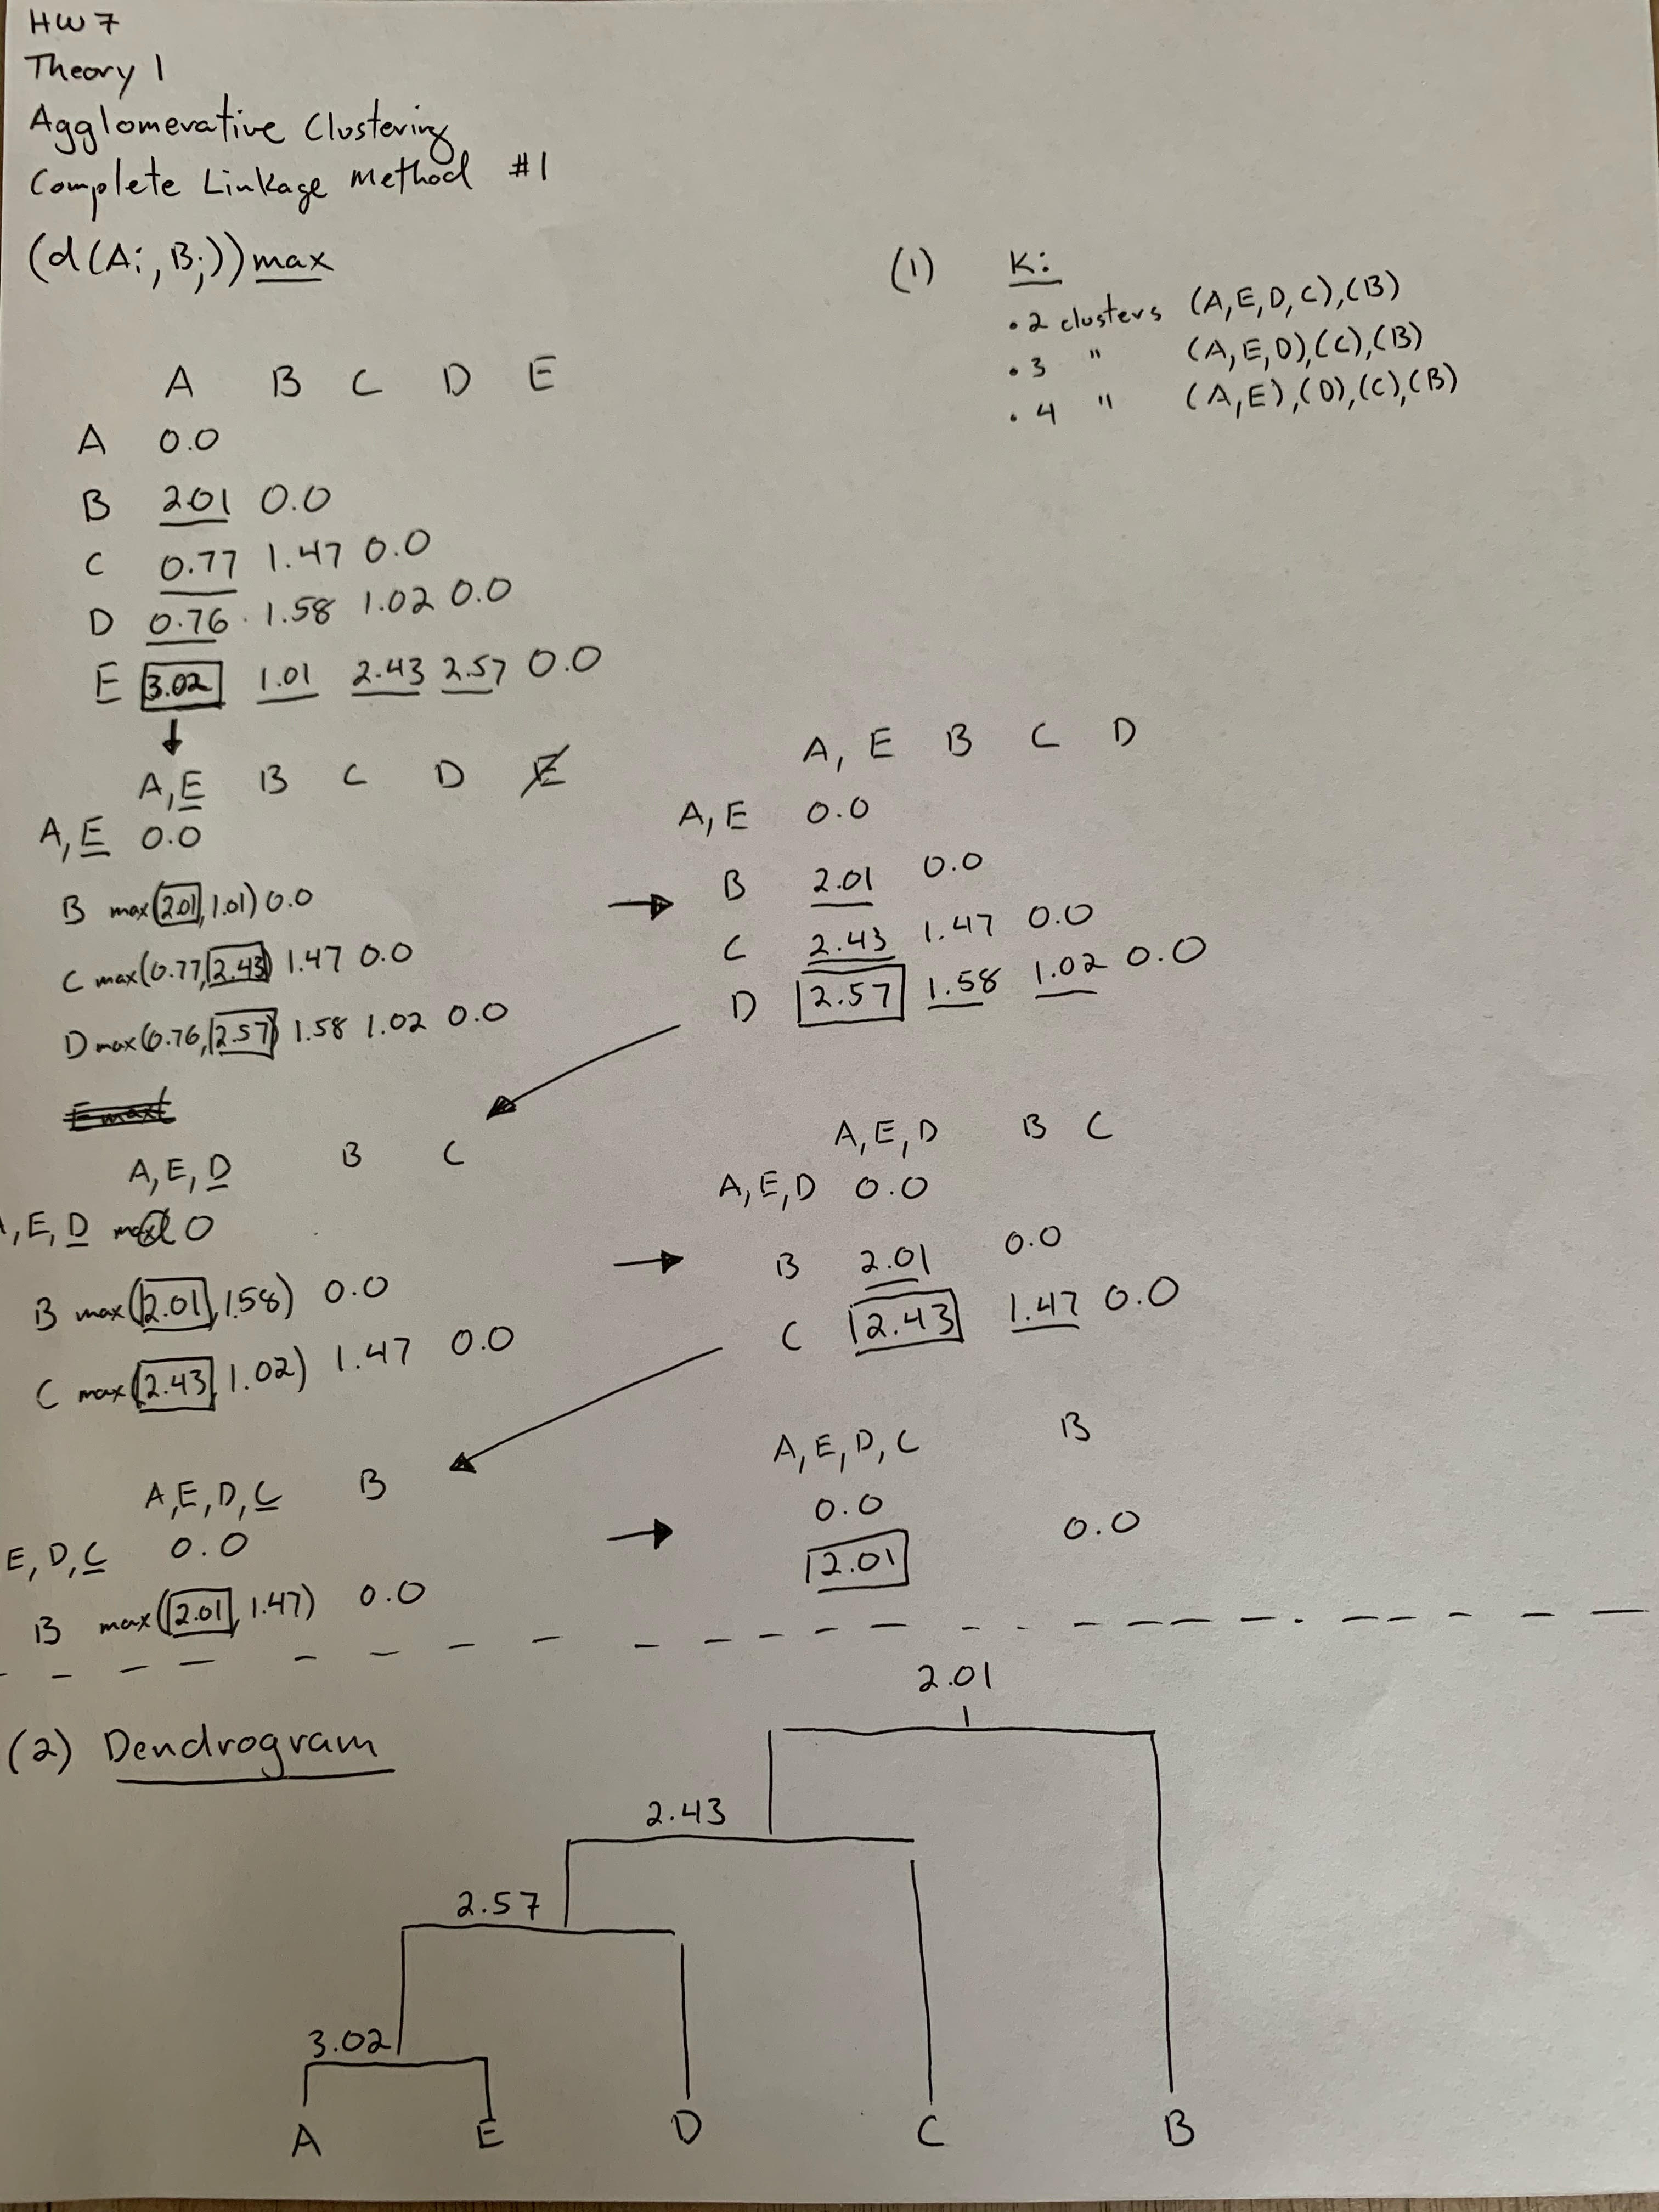 HW 7
Theory 1
Agglomerative Clustering
Complete Linkage Method #1
(d(Ai, Bj)) max
(1) K:
• 2 clusters (A,E,D,C),(B)
• 3 " (A,E,D),(C),(B)
• 4 " (A,E),(D),(C),(B)
A B C D E
A 0.0
B 2.01 0.0
C 0.77 1.47 0.0
D 0.76 1.58 1.02 0.0
E 3.02 1.01 2.43 2.57 0.0
A,E B C D E
A,E 0.0
B max(2.01, 1.01) 0.0
C max(0.77, 2.43) 1.47 0.0
D max(0.76, 2.57) 1.58 1.02 0.0
E max(
A, E B C D
A, E 0.0
B 2.01 0.0
C 2.43 1.47 0.0
D 2.57 1.58 1.02 0.0
A, E, D B C
, E, D 0
B max(2.01, 1.58) 0.0
C max(2.43, 1.02) 1.47 0.0
A, E, D B C
A, E, D 0.0
B 2.01 0.0
C 2.43 1.47 0.0
A,E,D,C B
E, D, C 0.0
B max(2.01, 1.47) 0.0
A, E, D, C B
0.0
2.01 0.0
(2) Dendrogram
2.01
2.43
2.57
3.02
A E D C B